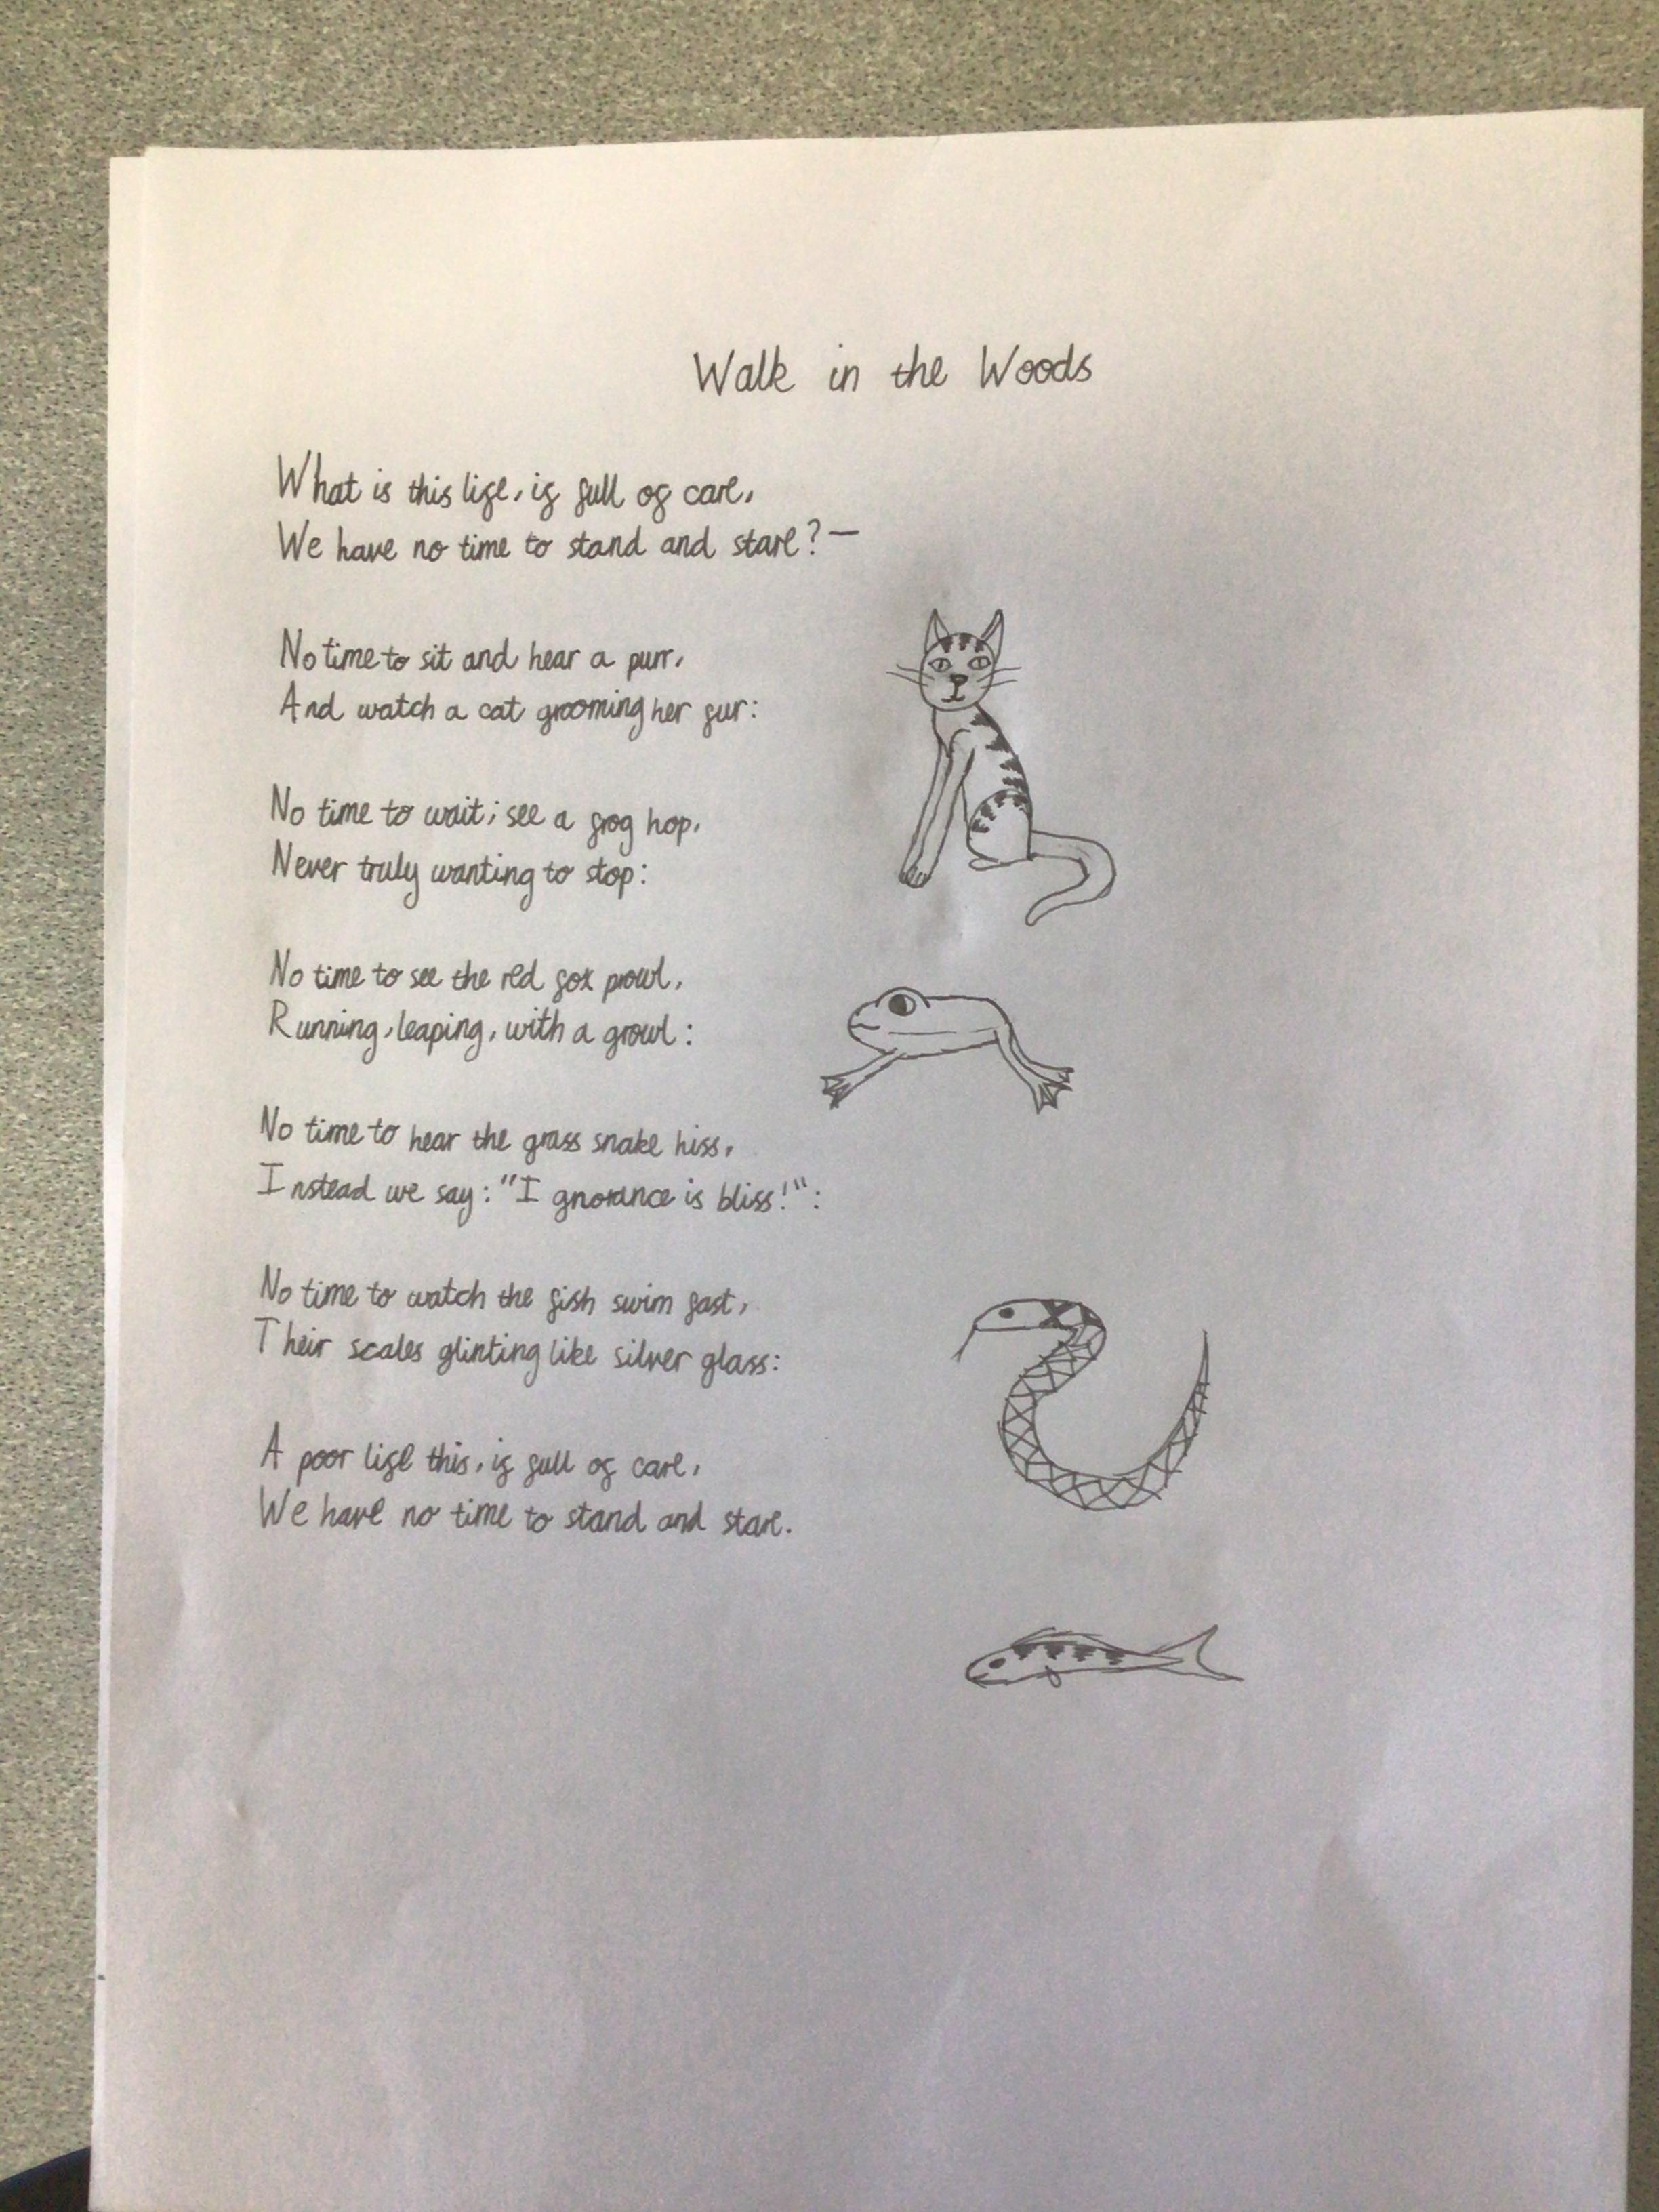 Walk in the Woods
What is this life, if full of care,
We have no time to stand and stare?—
No time to sit and hear a purr,
And watch a cat grooming her fur:
No time to wait; see a frog hop,
Never truly wanting to stop:
No time to see the red fox prowl,
Running, leaping, with a growl:
No time to hear the grass snake hiss,
Instead we say: "Ignorance is bliss!":
No time to watch the fish swim fast,
Their scales glinting like silver glass:
A poor life this, if full of care,
We have no time to stand and stare.